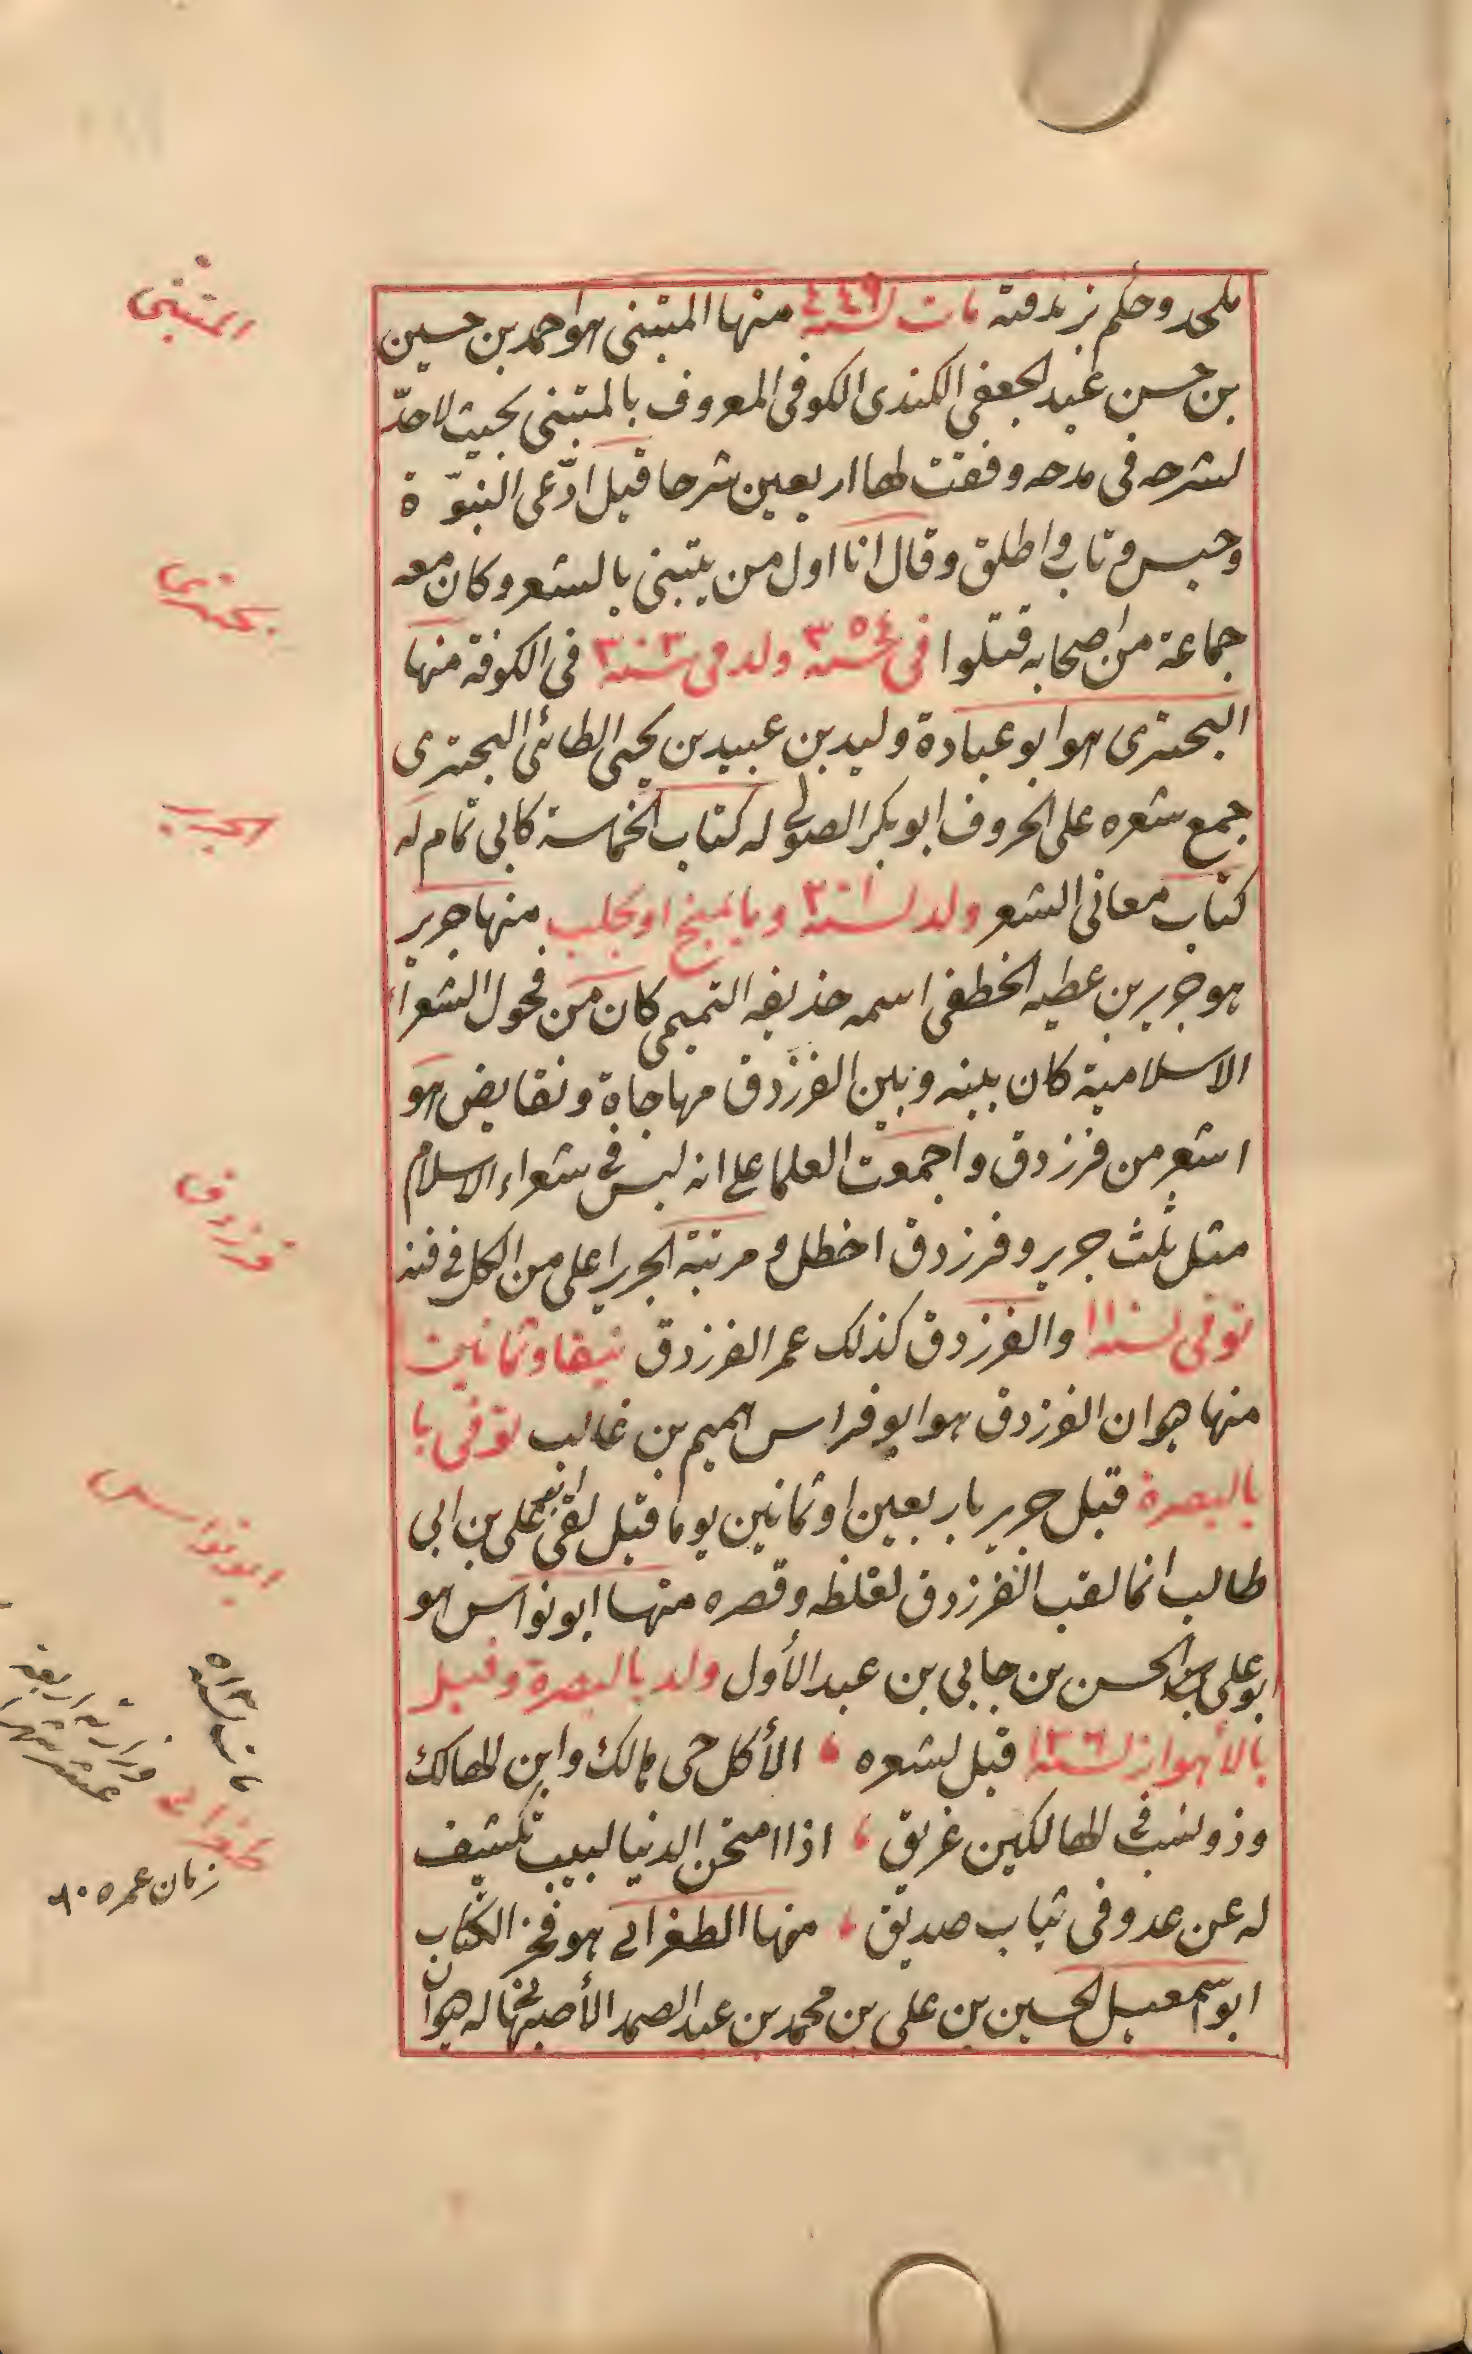 ملحد وحكم زندقته مات لسنة ٤٤٩ منها المتبنى هو احمد بن حسين
بن حسن عبد الجعفى الكندى الكوفى المعروف بالمتبنى بحيث لا حدّ
لشرحه فى مدحه وفقت لها اربعين شرحا قبل ادّعى النبوّة
وحبس وتاب واطلق وقال انا اول من يتبنى بالشعر وكان معه
جماعة من اصحابه قتلوا فى سنة ٣٥٤ ولد فى سنة ٣٠٣ فى الكوفة منها
البحترى هو ابو عبادة وليد بن عبيد بن يحيى الطائى البحترى
جمع شعره على الحروف ابو بكر الصولى له كتاب الحماسة كابى تمام له
كتاب معانى الشعر ولد لسنة ٢٠١ وبالمنبج او بحلب منها جرير
هو جرير بن عطيه الخطفى اسمه حذيفه التميمى كان من فحول الشعرأ
الاسلامية كان بينه وبين الفرزدق مهاجاة ونقايض هو
اشعر من فرزدق واجمعت العلما على انه ليس فى شعراء الاسلام
مثل ثلث جرير وفرزدق اخطل و مرتبة الجرير اعلى من الكل فى فنه
توفى لسنة ١١ والفرزدق كذلك عمر الفرزدق نيفا وثمانين
منها هو ان الفرزدق هو ابو فراس هميم بن غالب توفى با
بالبصرة قبل جرير باربعين او ثمانين يوما قبل لقى على بن ابى
طالب انما لقب الفرزدق لغلظه وقصره منها ابو نواس هو
ابو على الحسن بن جابى بن عبد الأول ولد بالبصرة وقيل
بالأهواز لسنة ١٣٦ قبل لشعره ، الأكل حى مالك وابن الهالك
وذو نسب فى الهالكين غريق ، اذا امتحن الدنيا لبيب تكشف
له عن عدو فى ثياب صديق ، منها الطغرائى هو فخر الكتاب
ابو اسمعيل الحسين بن على بن محمد بن عبد الصمد الأصبهانى له هو ان
المتنبى
بحترى
الجرير
فرزدق
ابو نواس
مات لسنة ٥١٣
وزارته اربعة
عشر شهرا
طغرائى
زمان عمره